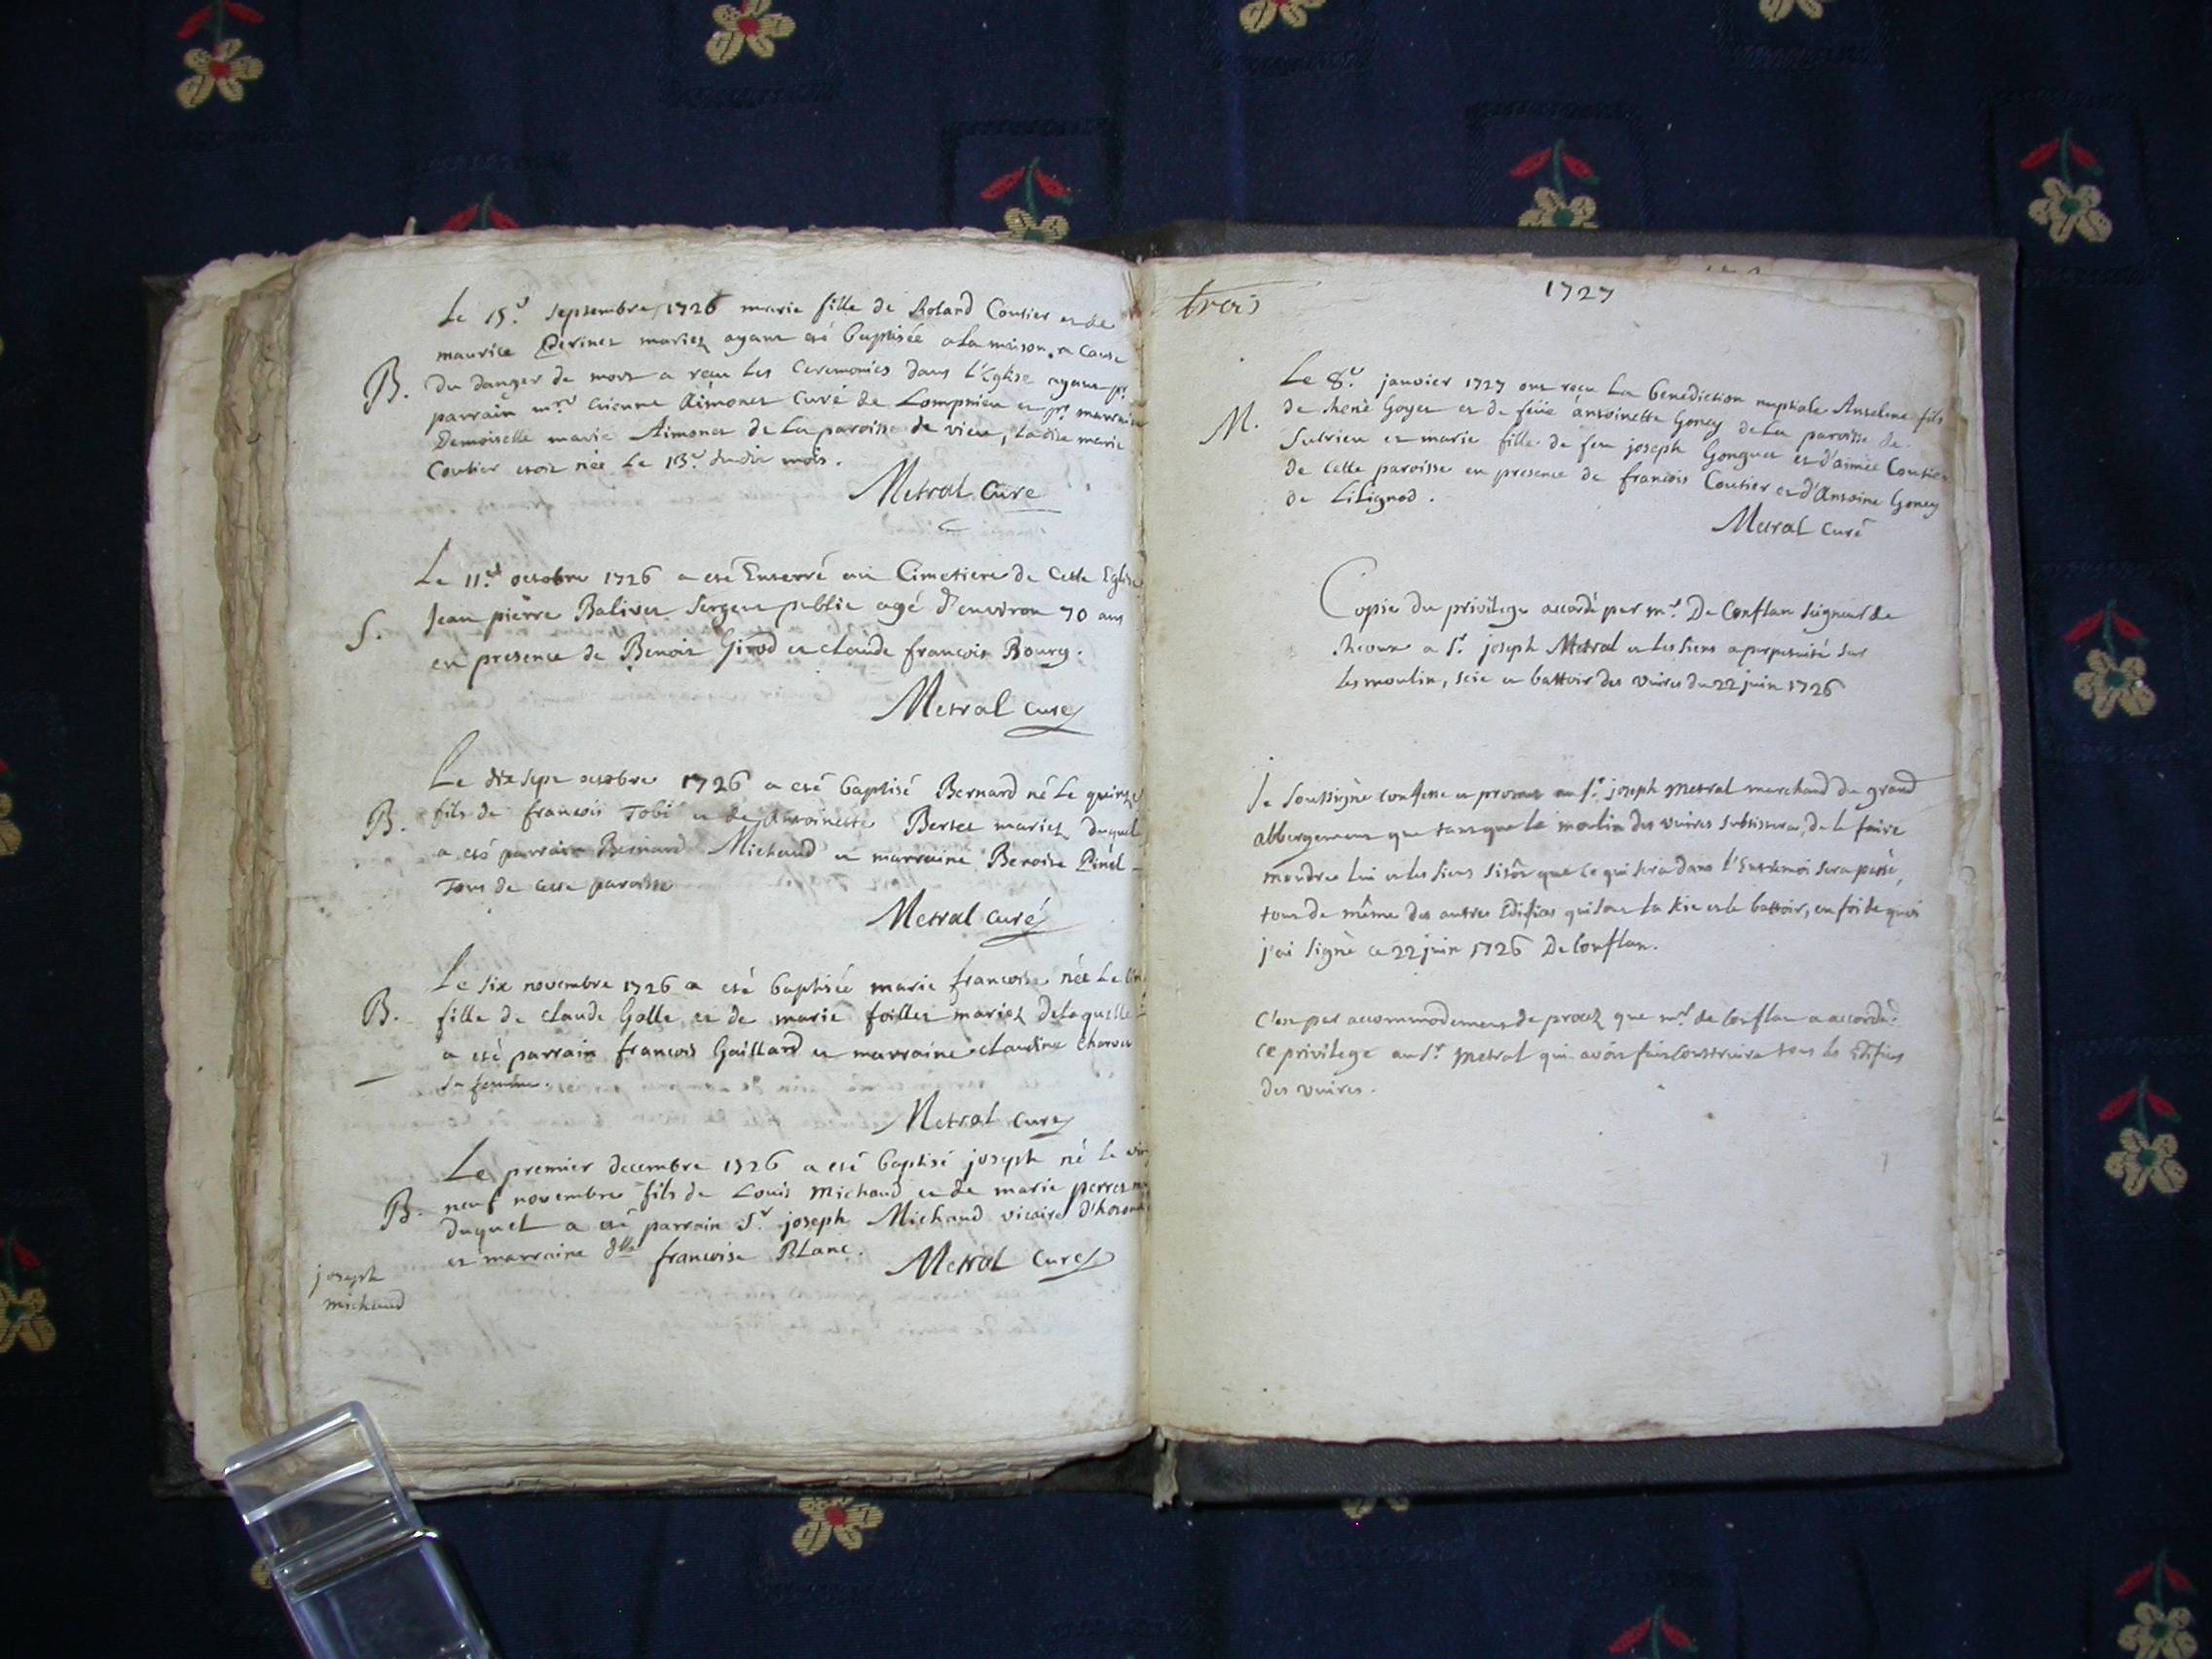 Le 15.e septembre 1726 marie fille de Roland Coutier et de
maurice Perinet mariez ayant esté baptisée a la maison a cause
B. Du danger de mort a reçu les Ceremonies dans l'Eglise ayant pr
parrain mre etienne Aimonet Curé de Lompnieu et pr marraine
Demoiselle marie Aimonet de la paroisse de vieu, ladite marie
Coutier etoit née le 13.e dudit mois.
Metral Curé
Le 11.e octobre 1726 a esté Enterré au Cimetiere de Cette Eglise
S. Jean pierre Balivet sergent public agé d'environ 70 ans
en presence de Benoit Girod et claude françois Bourg.
Metral curé
Le dix sept octobre 1726 a esté baptisé Bernard né le quinze
B. fils de françois Tobi et de Antoinette Bertet mariez duquel
a esté parrain Bernard Michaud et marraine Benoite Pinel
Tous de cette paroisse
Metral curé
Le six novembre 1726 a esté baptisée marie françoise née le
B. fille de claude Golle et de marie foillet mariez de laquelle
a esté parrain françois Gaillard et marraine claudine Charvet
sa femme.
Metral curé
Le premier decembre 1726 a esté baptisé joseph né le
B. neuf novembre fils de Louis Michaud et de marie perret
duquel a esté parrain Sr joseph Michaud vicaire
et marraine dlle françoise Blanc.
Metral Curé
joseph
michaud
trois
1727
Le 8.e janvier 1727 ont reçu La benediction nuptiale Anselme fils
M. de René Goyet et de feüe antoinette Goney de La paroisse de
Sutrieu et marie fille de feu joseph Gonguet et d'aimée Coutier
de cette paroisse en presence de françois Coutier et d'Antoine Goney
de Lilignod.
Metral curé
Copie du privilege accordé par mr. De Conflan seigneur de
a Sr. joseph Metral et les siens a perpetuité sur
les moulin, scie et battoir des vuires du 22 juin 1726
Je soussigné confesse et promet au Sr. joseph Metral marchand du grand
abbergement que tant que le moulin des vuires subsistera, de le faire
moudre lui et les siens sitôt que ce qui sera dans l'Entremoi sera passé,
tout de même des autres Edifices qui sont la scie et le battoir, en foi de quoi
j'ai signé ce 22 juin 1726 De Conflan.
C'est par accommodement de procez que mr. de Conflan a accordé
ce privilege au Sr. Metral qui avoit fait construire tous les Edifices
des vuires.